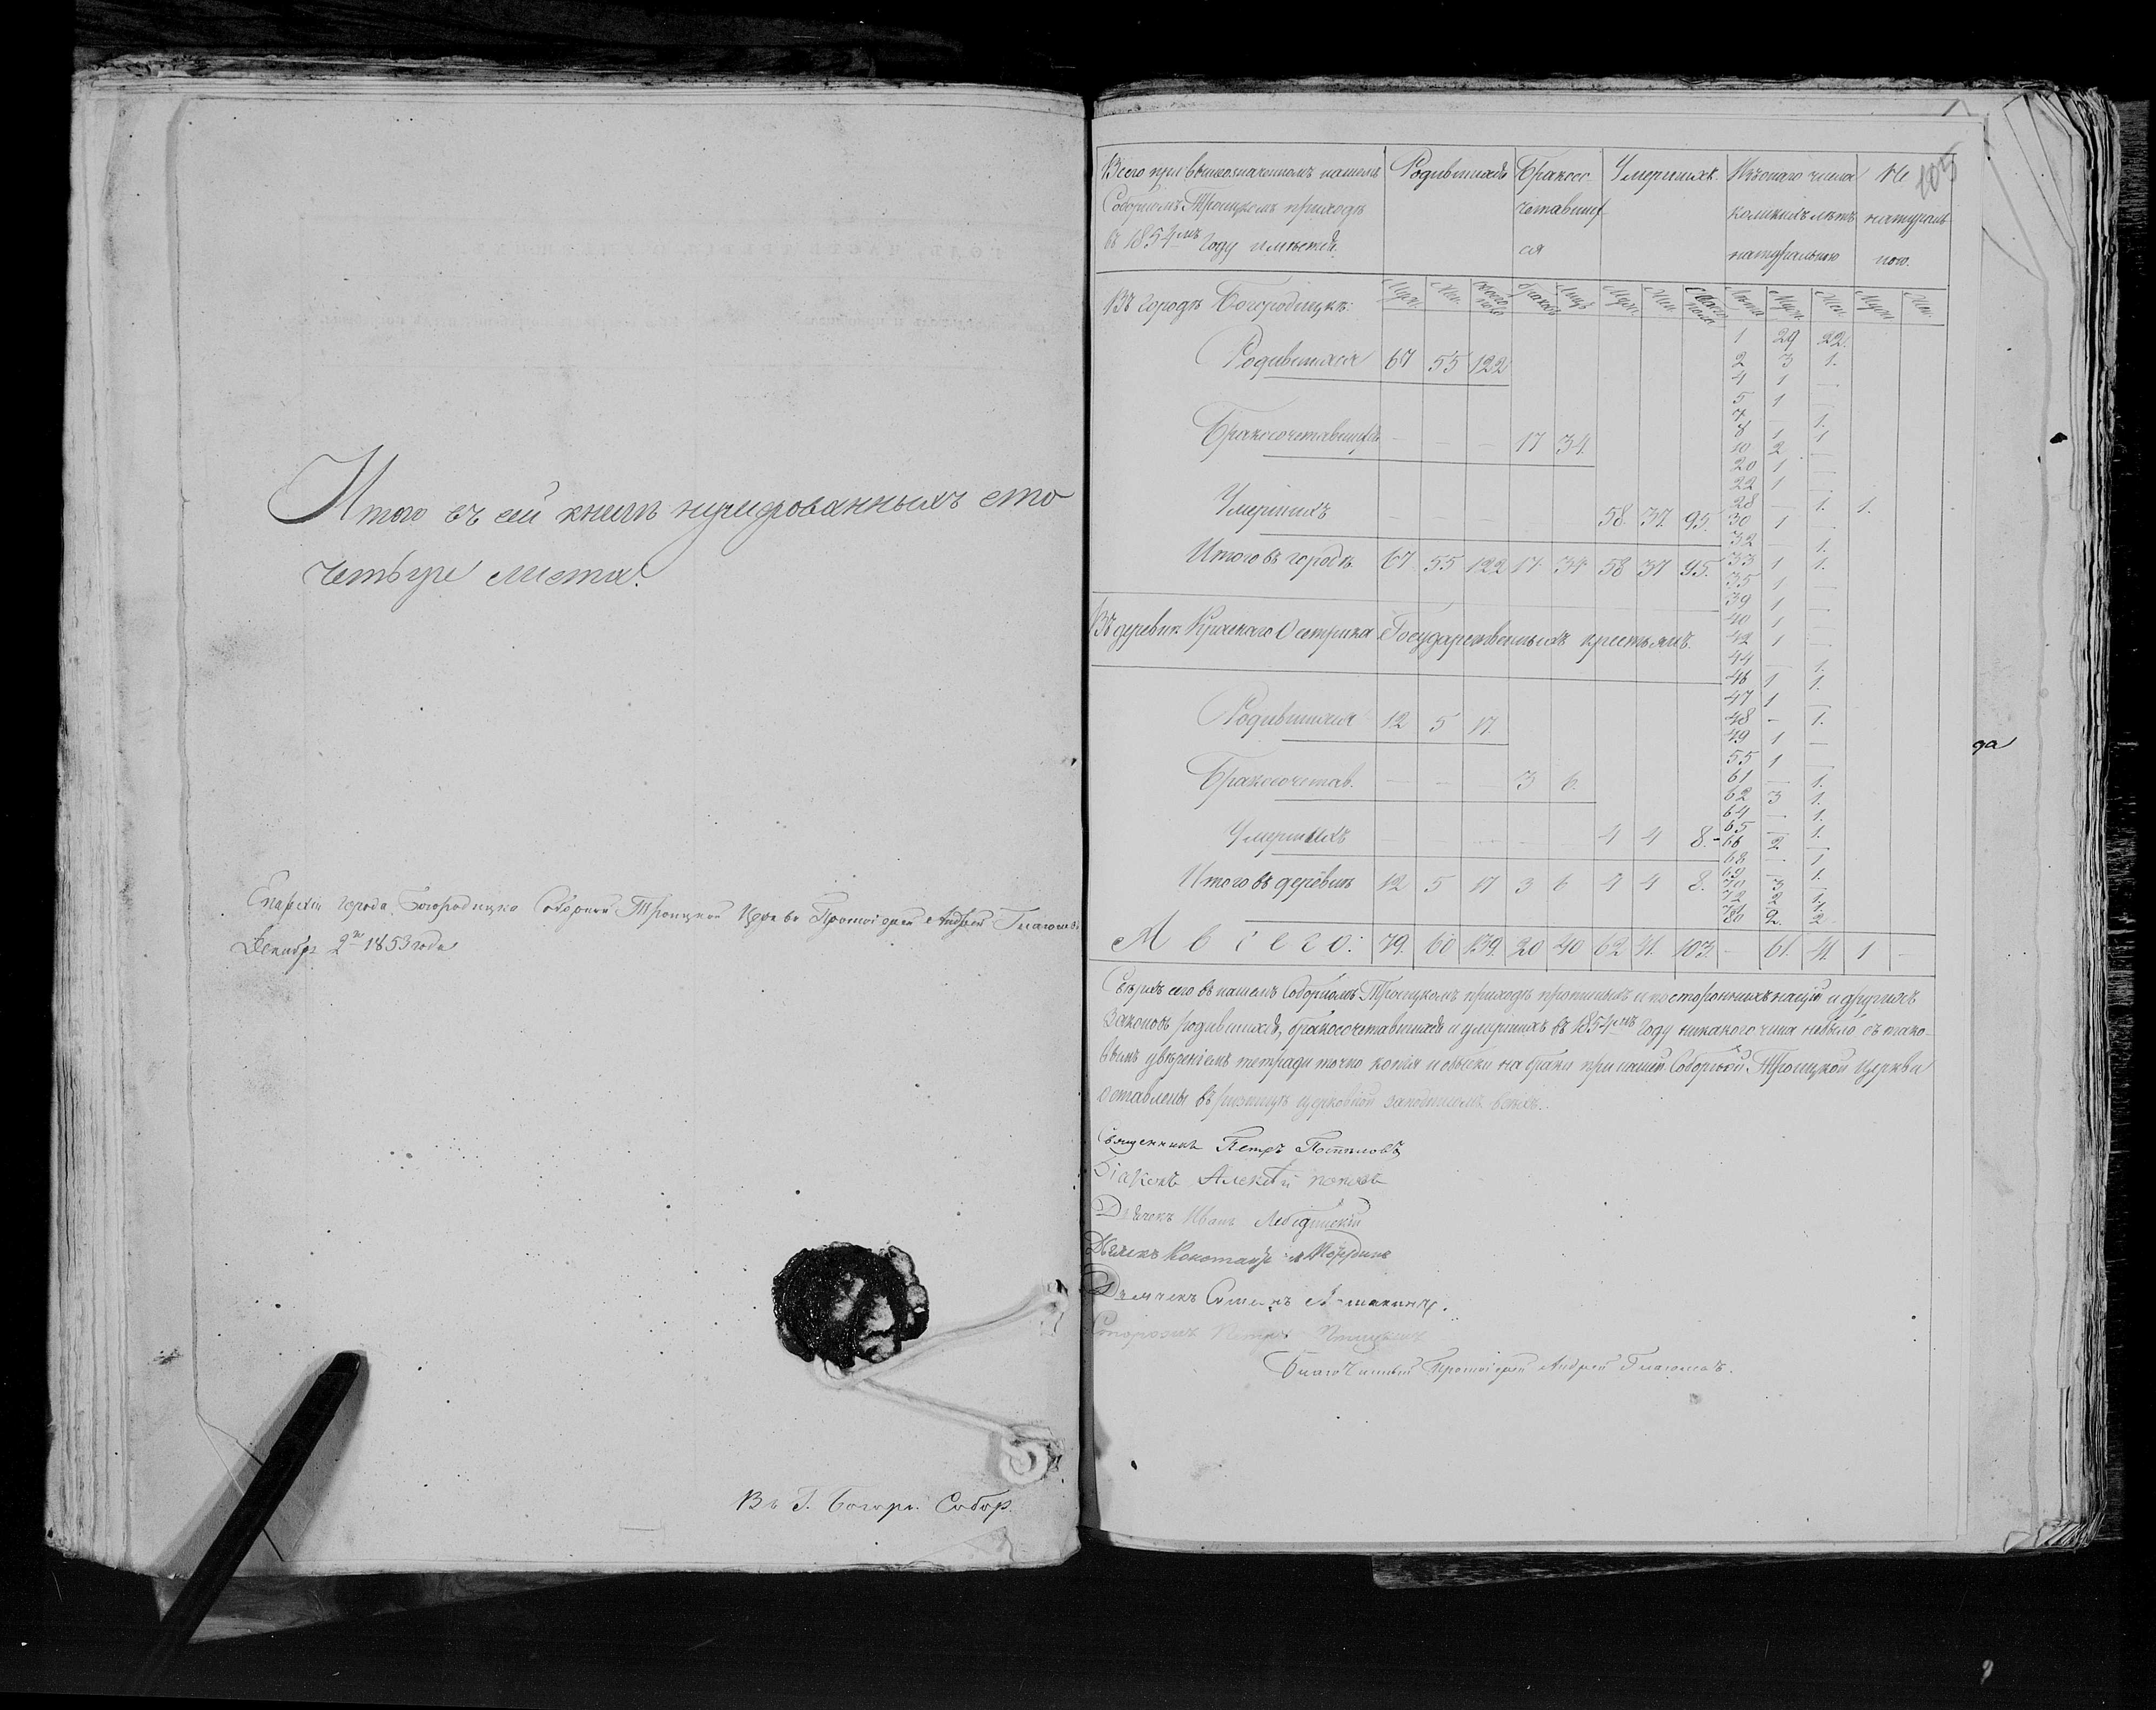 Итого въ сей книгѣ нумерованныхъ сто
четыре листа.
города Богородицка Соборной Троицкой Протоіерей Андрей
Декабря 2го 1853 года
Въ Г. Богор. Собор.
105
Всего при вышеозначенномъ нашемъ
Соборномъ Троицкомъ приходѣ
въ 1854мъ году имѣется
Родившихся
Бракосо-
четавших-
ся
Умершихъ.
Изъ онаго числа
коликихъ лѣтъ
натурально
Не
натураль
ною.
Въ городѣ Богородицкѣ:
Муж. Жен. Обоего пола Браковъ Лицъ Муж. Жен. Обоего пола Лѣта Муж. Жен. Муж. Жен.
1 29 22.
Родившихся 67 55 122
2 3 1.
4 1 —
5 1 —
7 — 1.
8 1 1
Бракосочетавшихся — — — 17 34.
10 2 —
20 1 —
22 1 —
28 — 1. 1.
Умершихъ — — — 58. 37. 95.
30 1 —
32 — 1.
Итого въ городѣ. 67 55 122 17 34 58 37 95.
33 1 1.
35 1 —
39 1 —
40 1 —
Въ деревнѣ Государственныхъ крестьянъ.
42 1 —
44 — 1.
46 1 1.
47 1 —
Родившихся 12 5 17.
48 — 1.
49 1 —
55 1 —
61 — 1.
Бракосочетав. — — — 3 6.
62 3 1.
64 — 1.
65 — 1.
Умершихъ — — — — — 4 4 8.
66 2 —
68 — 1
69 — 1.
Итого въ деревнѣ 12 5 17 3 6 4 4 8.
70 3 —
72 2 1.
80 2. 2
А всего: 79. 60 139. 20 40 62 41. 103. — 61. 41 1 —
Сверхъ сего въ нашемъ Соборномъ Троицкомъ приходѣ протчихъ и постороннихъ націй и другихъ
законовъ родившихся, бракосочетавшихся и умершихъ въ 1854мъ году никакого чина небыло, съ тако-
вымъ увѣреніемъ тетради точно копія и обыски на браки при нашей Соборной Троицкой церкви
оставлены въ ризницѣ церковной
Священникъ Петръ
Діаконъ Алексѣй Поповъ
Дьячекъ Иванъ
Дьячекъ
Дьячекъ
Петръ
Благочинный Протоіерей Андрей